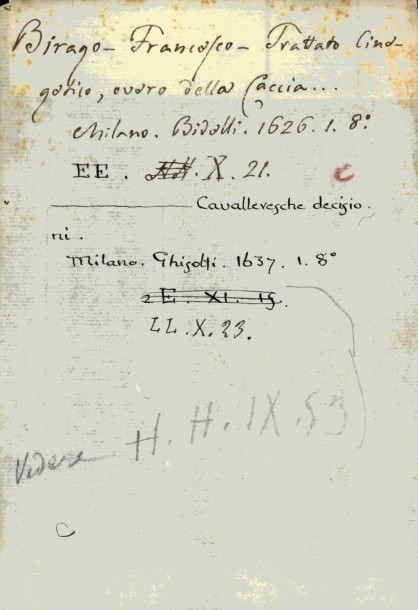 Birago - Francesco - Trattato Cine-
getico, overo della Caccia...
Milano. Bidelli. 1626. 1. 8°
EE. X. 21. C
Cavalleresche decisio.
ni.
Milano. Ghisolfi. 1637. 1. 8°
2 E. XI. 15.
LL. X. 23.
Vedere H. H. IX. 53
C